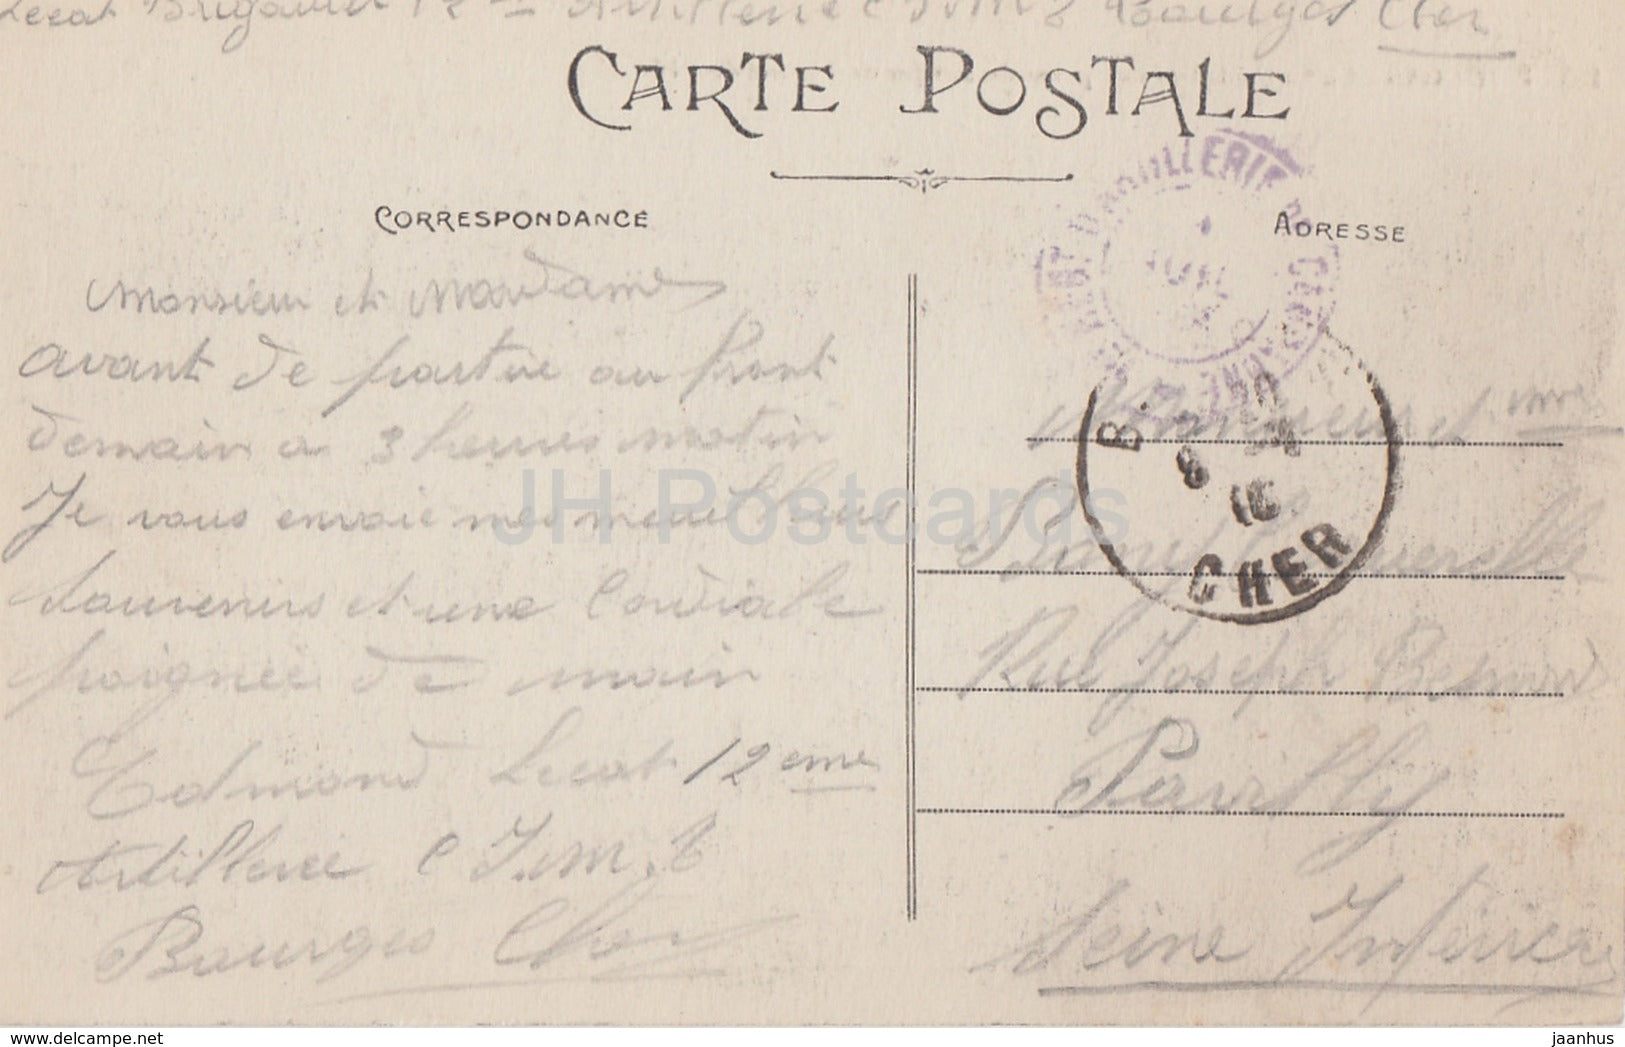 Lecat Brigadier 12me Artillerie C.I.M.8 Bourges Cher
CARTE POSTALE
CORRESPONDANCE
ADRESSE
Monsieur et Madame
avant de partire au front
demain a 3 heures matin
Je vous envoie mes meuilleus
souvenirs et une Cordiale
poignée de main
Edmond Lecat 12eme
Artillerie
Bourges Cher
D'ARTILLERIE DE
JUIL
B.
8
16
CHER
Monsieurs et mme
Rue Joseph Benard
Pavilly
Seine Inférieure
JH Postcards
www.delcampe.net
jaanhus